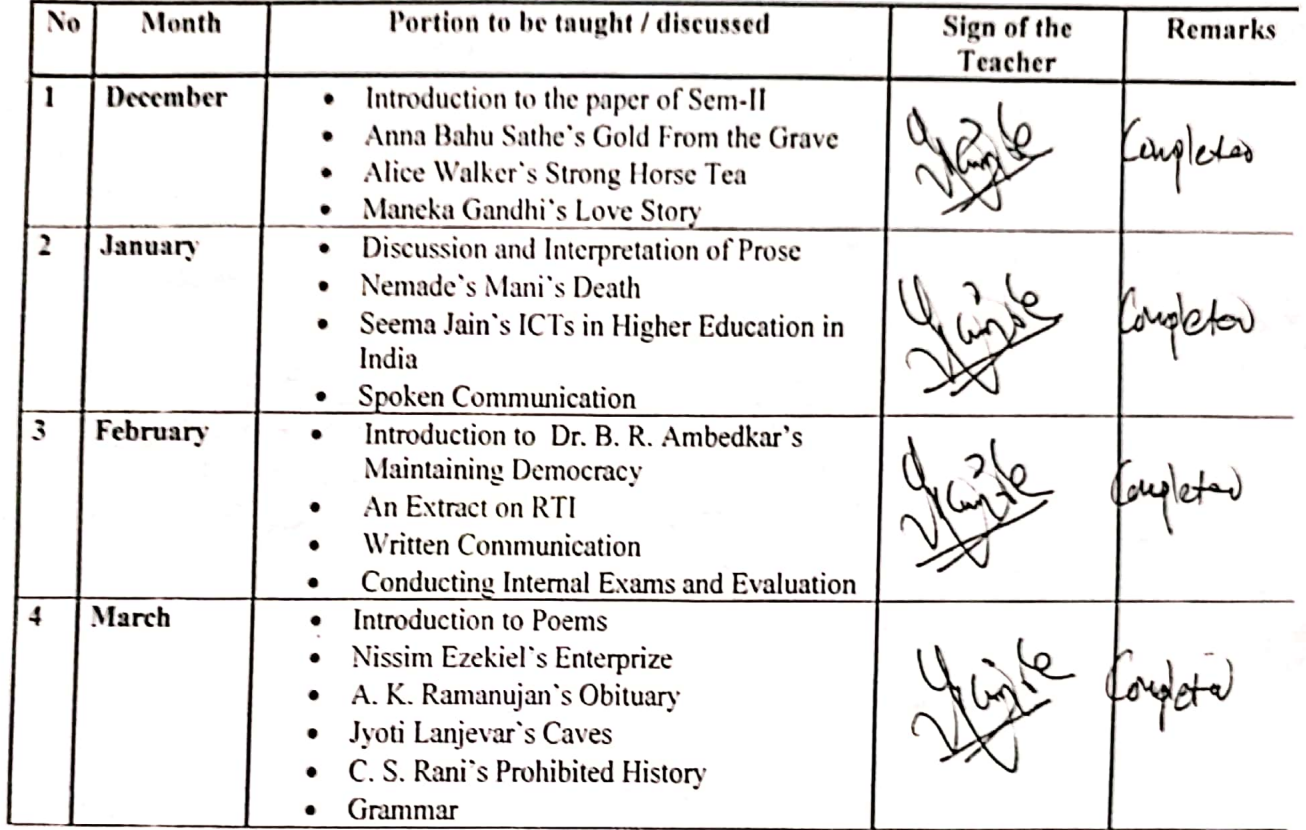 No Month Portion to be taught / discussed Sign of the Teacher Remarks
1 December • Introduction to the paper of Sem-II
• Anna Bahu Sathe`s Gold From the Grave
• Alice Walker`s Strong Horse Tea
• Maneka Gandhi`s Love Story
Completed
2 January • Discussion and Interpretation of Prose
• Nemade`s Mani`s Death
• Seema Jain`s ICTs in Higher Education in
India
• Spoken Communication
Completed
3 February • Introduction to Dr. B. R. Ambedkar`s
Maintaining Democracy
• An Extract on RTI
• Written Communication
• Conducting Internal Exams and Evaluation
Completed
4 March • Introduction to Poems
• Nissim Ezekiel`s Enterprize
• A. K. Ramanujan`s Obituary
• Jyoti Lanjevar`s Caves
• C. S. Rani`s Prohibited History
• Grammar
Completed